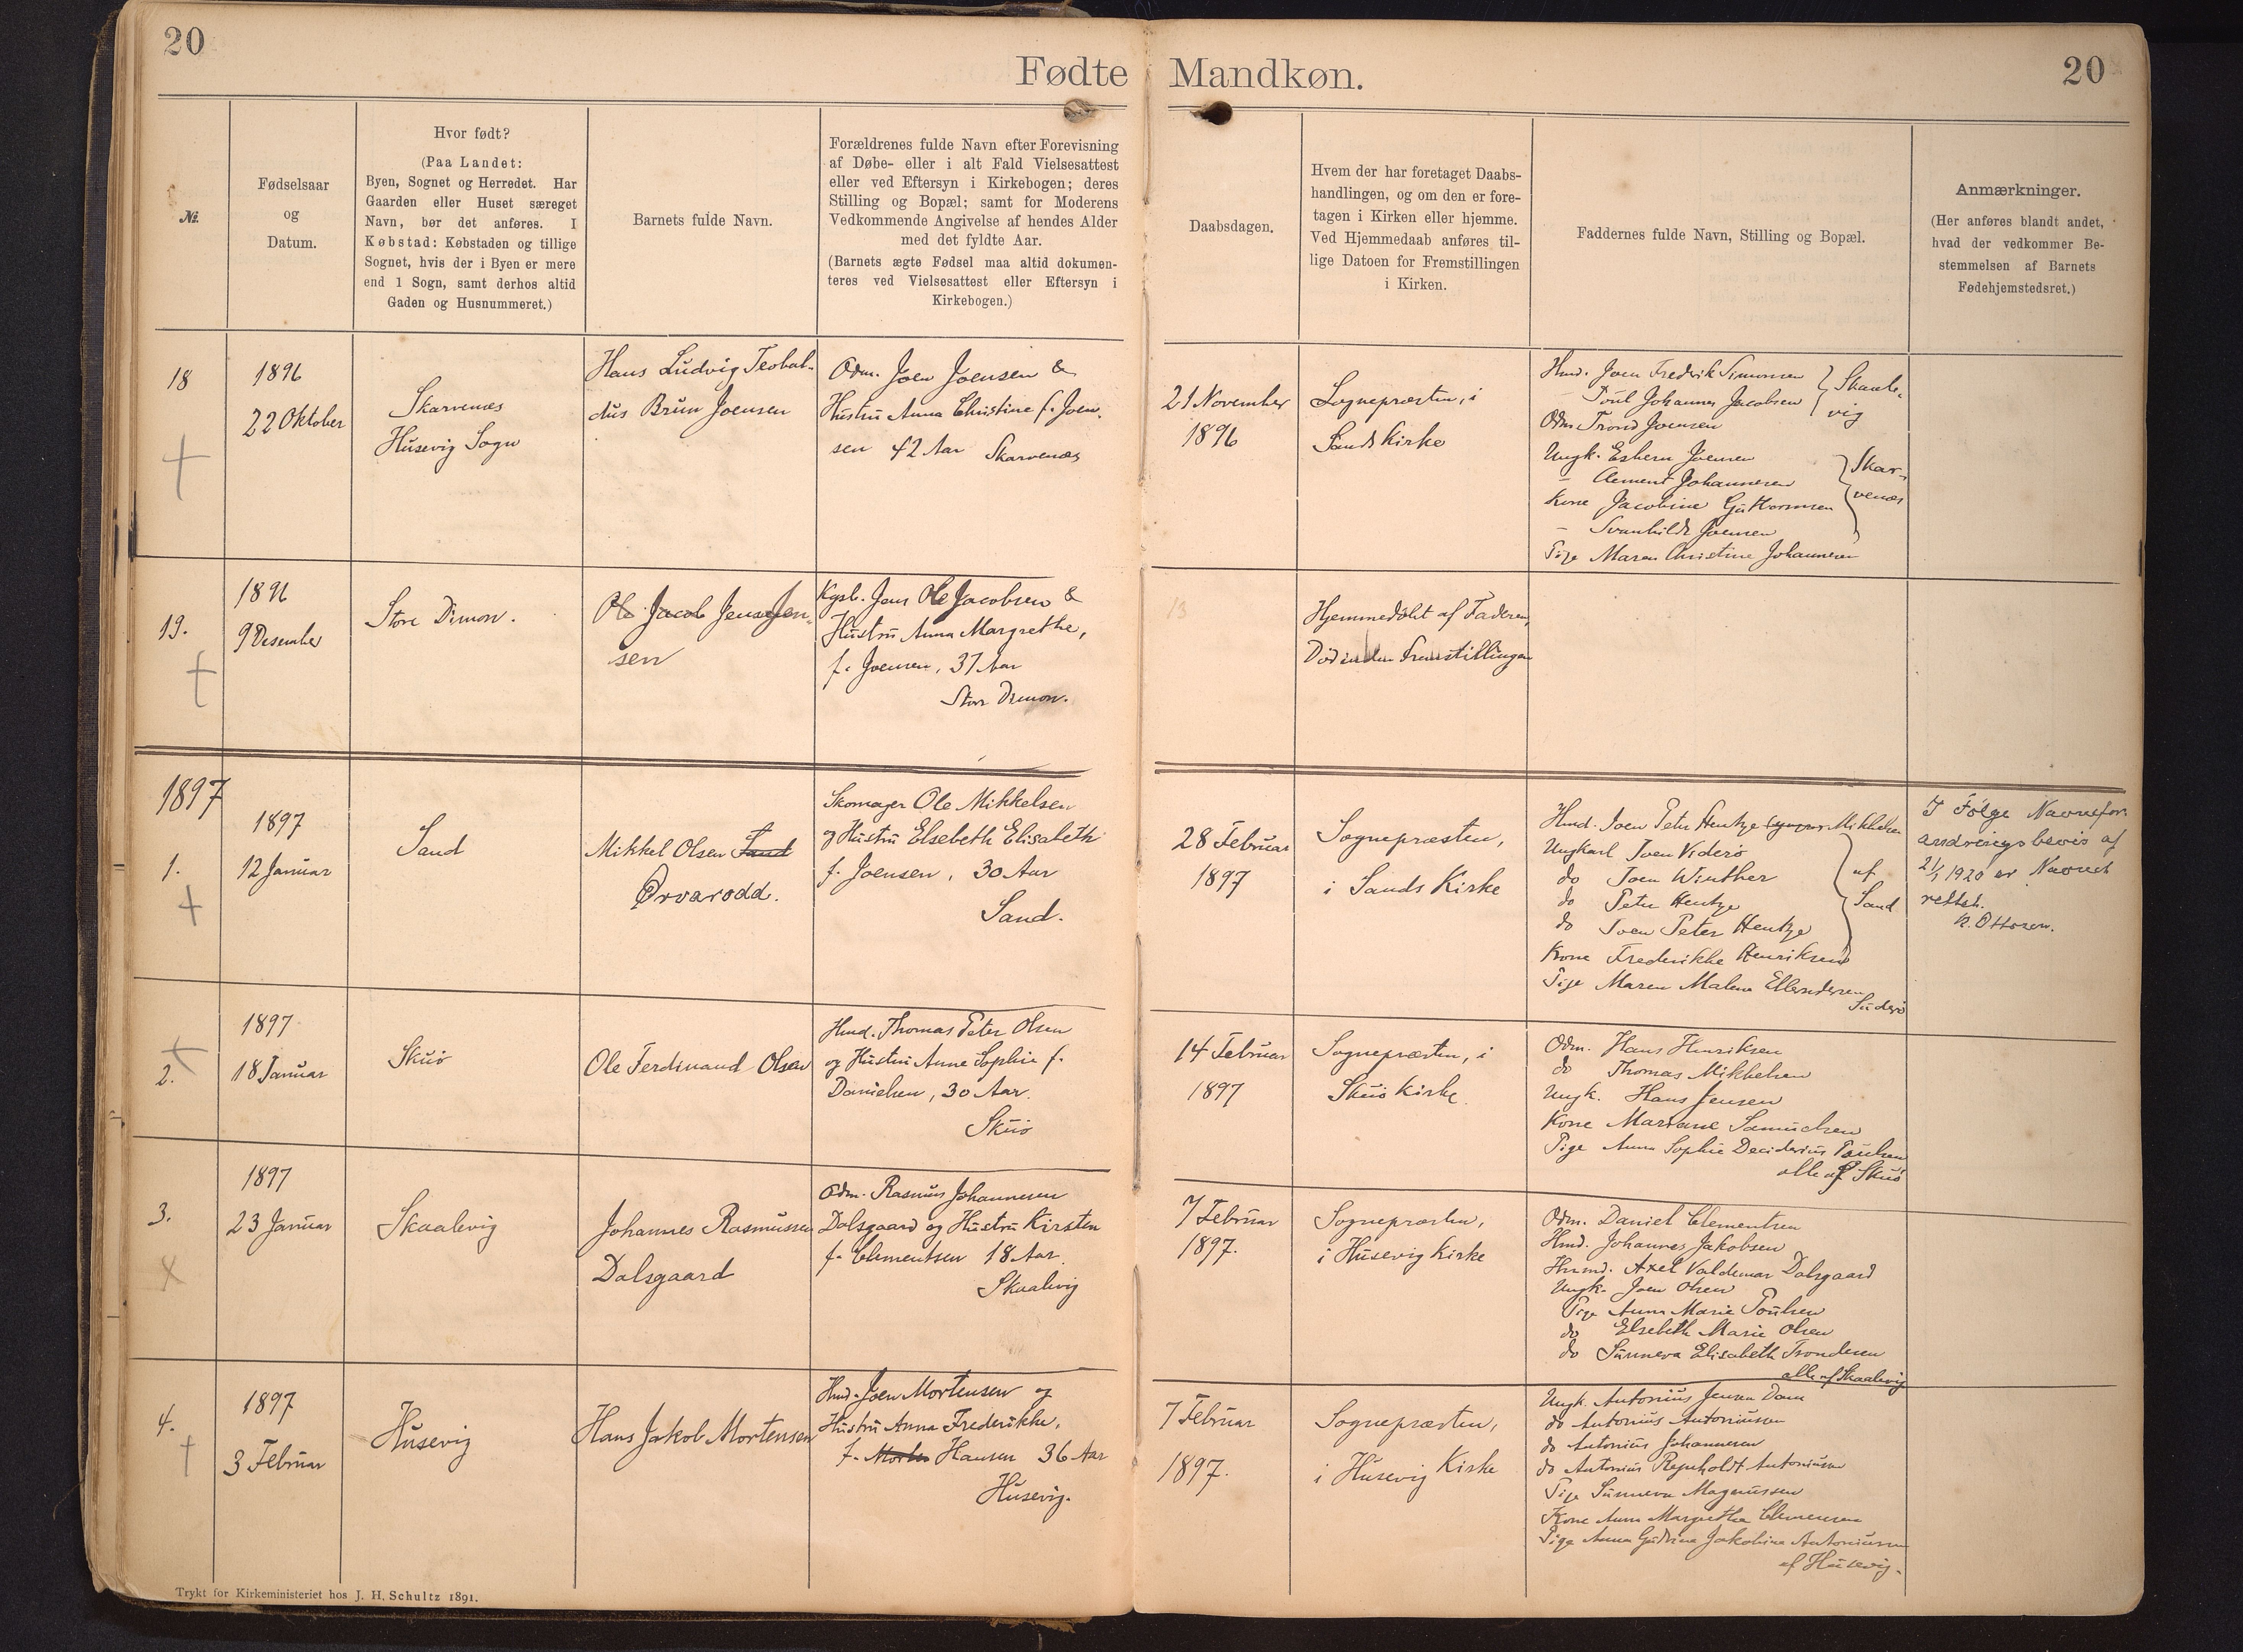 20
Fødte
Mandkøn.
20
Nr.
Fødselsaar
og
Datum.
Hvor født?
(Paa Landet:
Byen, Sognet og Herredet. Har
Gaarden eller Huset særeget
Navn, bør det anføres. I
Købstad: Købstaden og tillige
Sognet, hvis der i Byen er mere
end 1 Sogn, samt derhos altid
Gaden og Husnummeret.)
Barnets fulde Navn.
Forældrenes fulde Navn efter Forevisning
af Døbe- eller i alt Fald Vielsesattest
eller ved Eftersyn i Kirkebogen; deres
Stilling og Bopæl; samt for Moderens
Vedkommende Angivelse af hendes Alder
med det fyldte Aar.
(Barnets ægte Fødsel maa altid dokumen-
teres ved Vielsesattest eller Eftersyn i
Kirkebogen.)
Daabsdagen.
Hvem der har foretaget Daabs-
handlingen, og om den er fore-
tagen i Kirken eller hjemme.
Ved Hjemmedaab anføres til-
lige Datoen for Fremstillingen
i Kirken.
Faddernes fulde Navn, Stilling og Bopæl.
Anmærkninger.
(Her anføres blandt andet,
hvad der vedkommer Be-
stemmelsen af Barnets
Fødehjemstedsret.)
18
1896
22 Oktober
Skarvenæs
Husevig Sogn
Hans Ludvig Teobal-
dus Brun Joensen
Odm. Joen Joensen &
Hustru Anna Christine f. Joen-
sen 42 Aar Skarvenæs
21 November
1896
Sognepræsten, i
Sands Kirke
Hmd. Joen Frederik Simonsen
– Poul Johannes Jacobsen
Skaale-
vig
Odm. Trond Joensen
Ungk. Esbern Joensen
– Clement Johannesen
Kone Jacobine Guttormsen
– Svanhild Joensen
Pige Maren Christine Johannesen
Skar-
venæs
19.
1896
9 Desember
Store Dimon.
Ole Jacob Jens Jen-
sen
Kgsb. Jens Ole Jacobsen &
Hustru Anna Margrethe,
f. Joensen, 37 Aar
Store Dimon.
13
Hjemmedøbt af Faderen,
Død inden Fremstillingen
1897
1.
1897
12 Januar
Sand
Mikkel Olsen Sand
Ørvarodd.
Skomager Ole Mikkelsen
og Hustru Elsebeth Elisabeth
f. Joensen, 30 Aar
Sand.
28 Februar
1897
Sognepræsten,
i Sands Kirke
Hmd. Joen Peter Hentze Mikkelsen
Ungkarl Joen Viderø
do Joen Winther
do Peter Hentze
do Joen Peter Hentze
Kone Frederikke Henriksen
af
Sand
Pige Maren Malene
Suderø
I Følge Navnefor-
andringsbevis af
2/1 1920 er Navnet
rettet.
N. Ottosen.
2.
1897
18 Januar
Skuø
Ole Ferdinand Olsen
Hmd. Thomas Peter Olsen
og Hustru Anne Sophie f.
Danielsen, 30 Aar.
Skuø
14 Februar
1897
Sognepræsten, i
Skuø Kirke
Odm. Hans Henriksen
do Thomas Mikkelsen
Ungk. Hans Jensen
Kone Mariane Samuelsen
Pige Anna Sophie Deciderius Poulsen
alle af Skuø
3.
1897
23 Januar
Skaalevig
Johannes Rasmussen
Dalsgaard
Odm. Rasmus Johannesen
Dalsgaard og Hustru Kirsten
f. Clementsen 18 Aar.
Skaalevig
7 Februar
1897.
Sognepræsten,
i Husevig Kirke
Odm. Daniel Clementsen
Hmd. Johannes Jakobsen
Hmd. Axel Valdemar Dalsgaard
Ungk. Joen Olsen
Pige Anna Marie Poulsen
do Elsebeth Marie Olsen
do Sunneva Elisabeth Trondesen
alle af Skaalevig
4.
1897
3 Februar
Husevig
Hans Jakob Mortensen
Hmd. Joen Mortensen og
Hustru Anna Frederikke,
f. Hansen 36 Aar
Husevig.
7 Februar
1897.
Sognepræsten,
i Husevig Kirke
Ungk. Antonius Jensen Dam
do Antonius Antoniussen
do Antonius Johannesen
do Antonius Reynholdt Antoniussen
Pige Sunneva Magnussen
Kone Anna Margretha Clemensen
Pige Anna Gudrina Jakobina Antoniussen
af Husevig.
Trykt for Kirkeministeriet hos J. H. Schultz 1891.